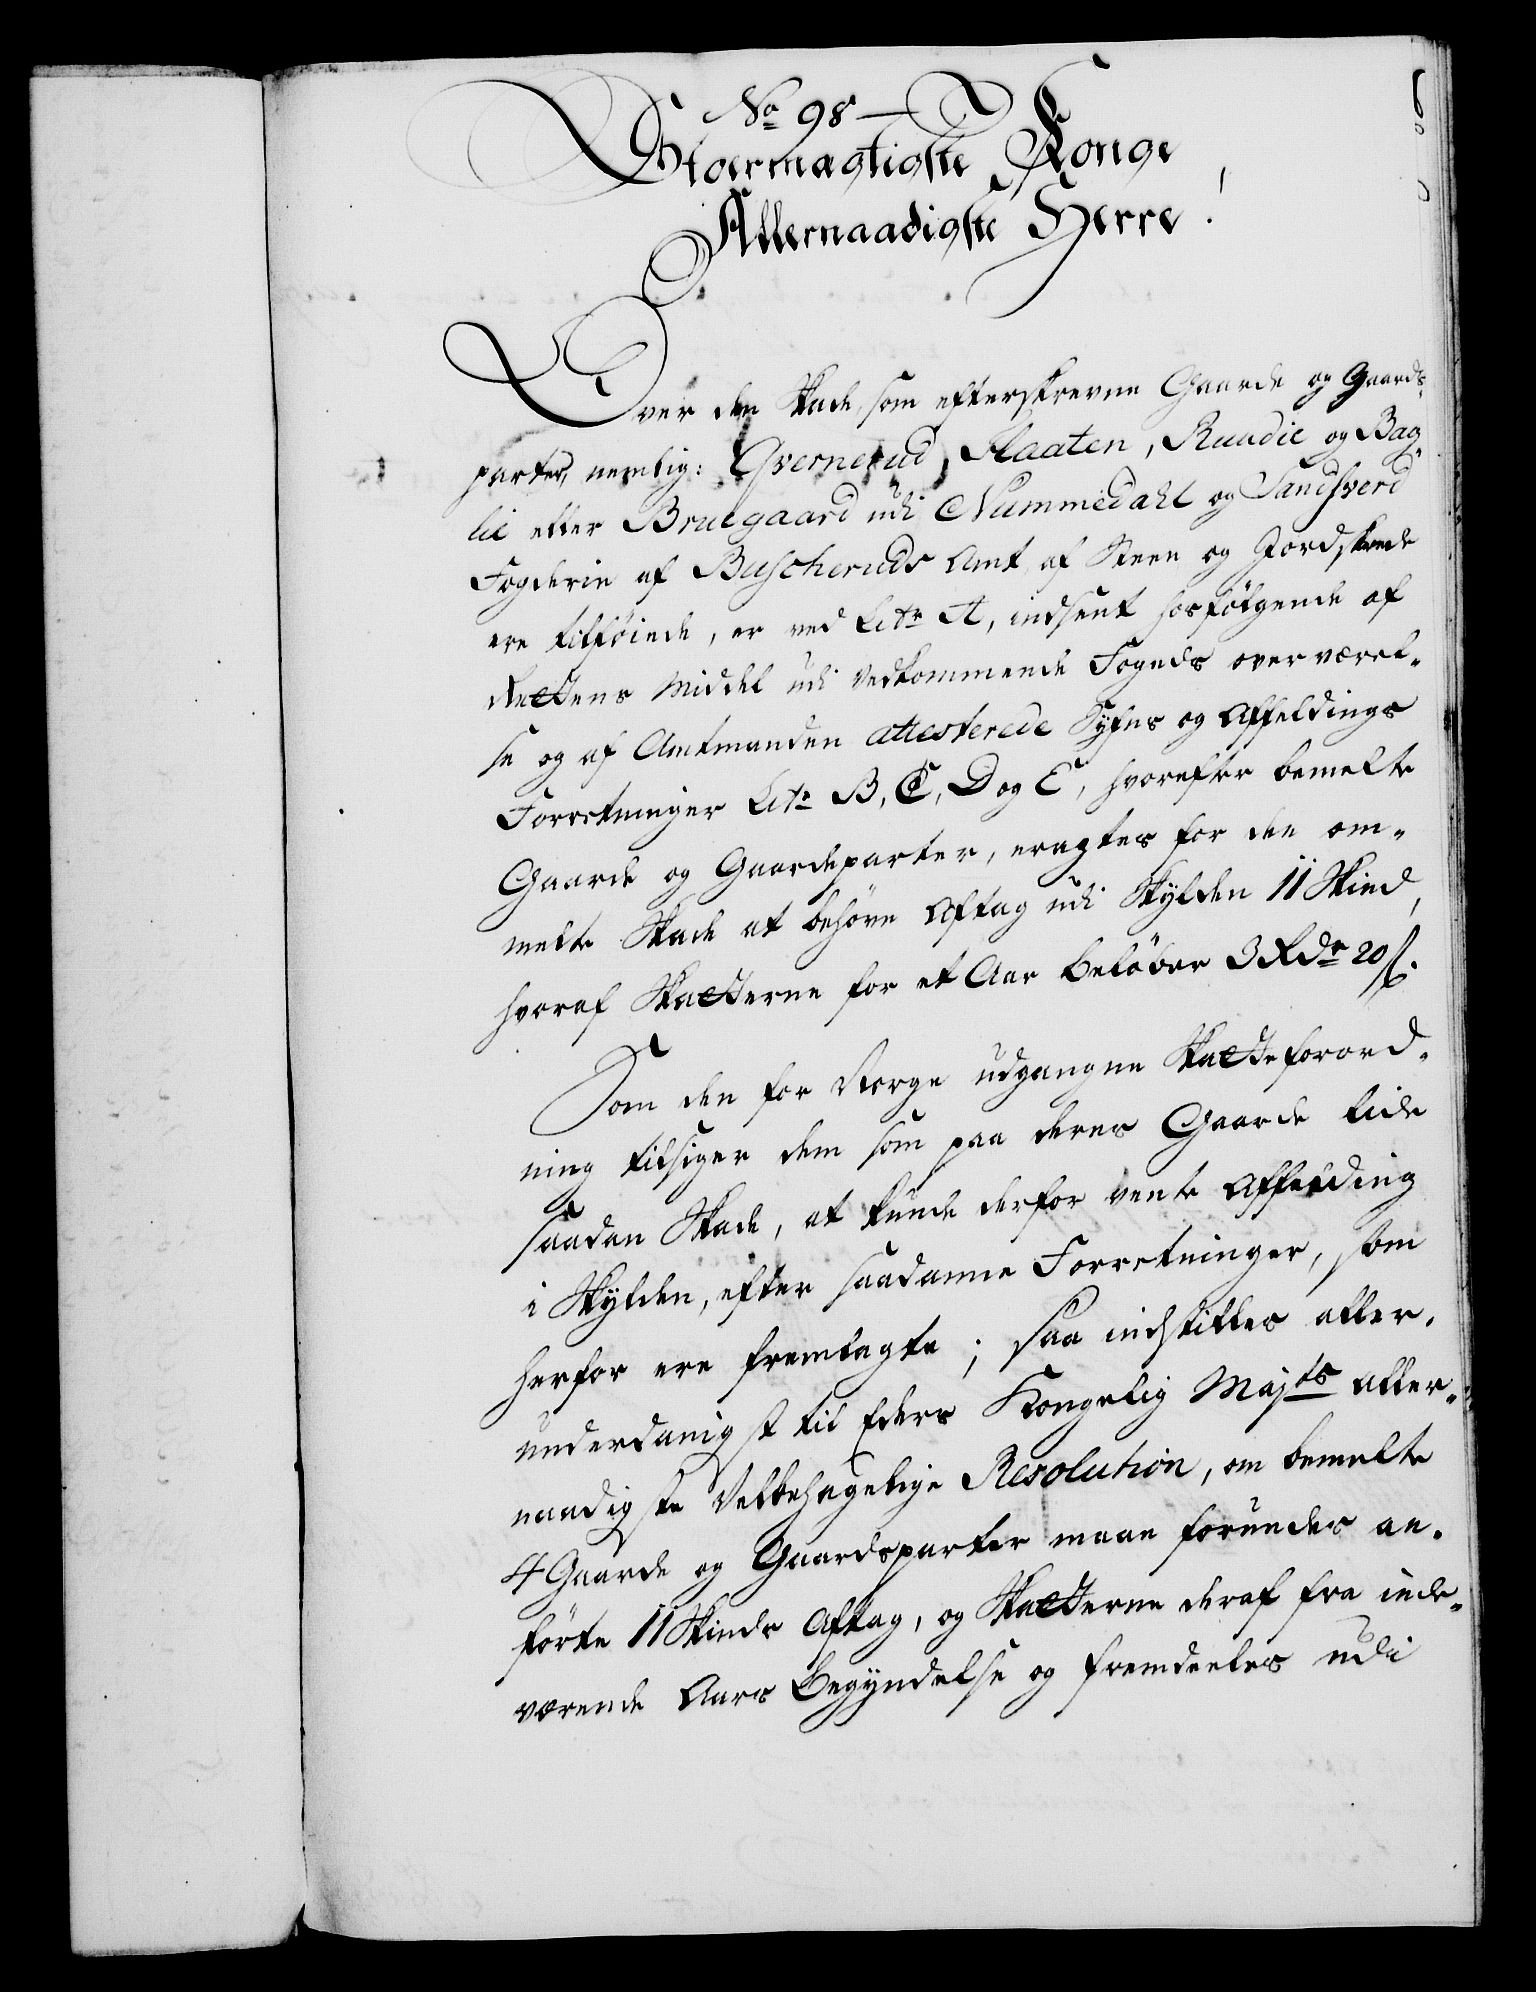 No 98 —
Stoermægtigste Konge
Allernaadigste Herre!
Over den Skade, som efterskrevne Gaarde og Gaards-
parter, nemlig: Qvernerud, Flaaten, Ruudie og Bag-
lie eller Bruegaard udi Nummedahl og Sandsverd
Fogderie af Buscheruds Amt af Steen og Jordskrede
ere tilföiede, er ved Litr A, indsent hosfölgende af
Rættens Middel udi Vedkommende Fogeds overværel-
se og af Amtmanden attesterede Syhns og Affeldings
Forretninger Litr B, C, D og E, hvorefter bemelte
Gaarde og Gaardeparter, eragtes for den om-
melte Skade at behöve Aftag udi Skylden 11 Skind,
hvoraf Skatterne for et Aar belöber 3 Rdr 20 s.
Som den for Norge udgangne Skatteforord-
ning tilsiger dem som paa deres Gaarde lide
saadan Skade, at kunde derfor vente Affelding
i Skylden, efter saadanne Forretninger, som
herfor ere fremlagte; saa indstilles aller-
underdanigst til Eders Kongelig Majts aller-
naadigste Velbehagelige Resolution, om bemelte
4 Gaarde og Gaardsparter maae forundes an-
förte 11 Skinds Aftag, og Skatterne deraf fra inde-
værende Aars Begyndelse og fremdeeles udi